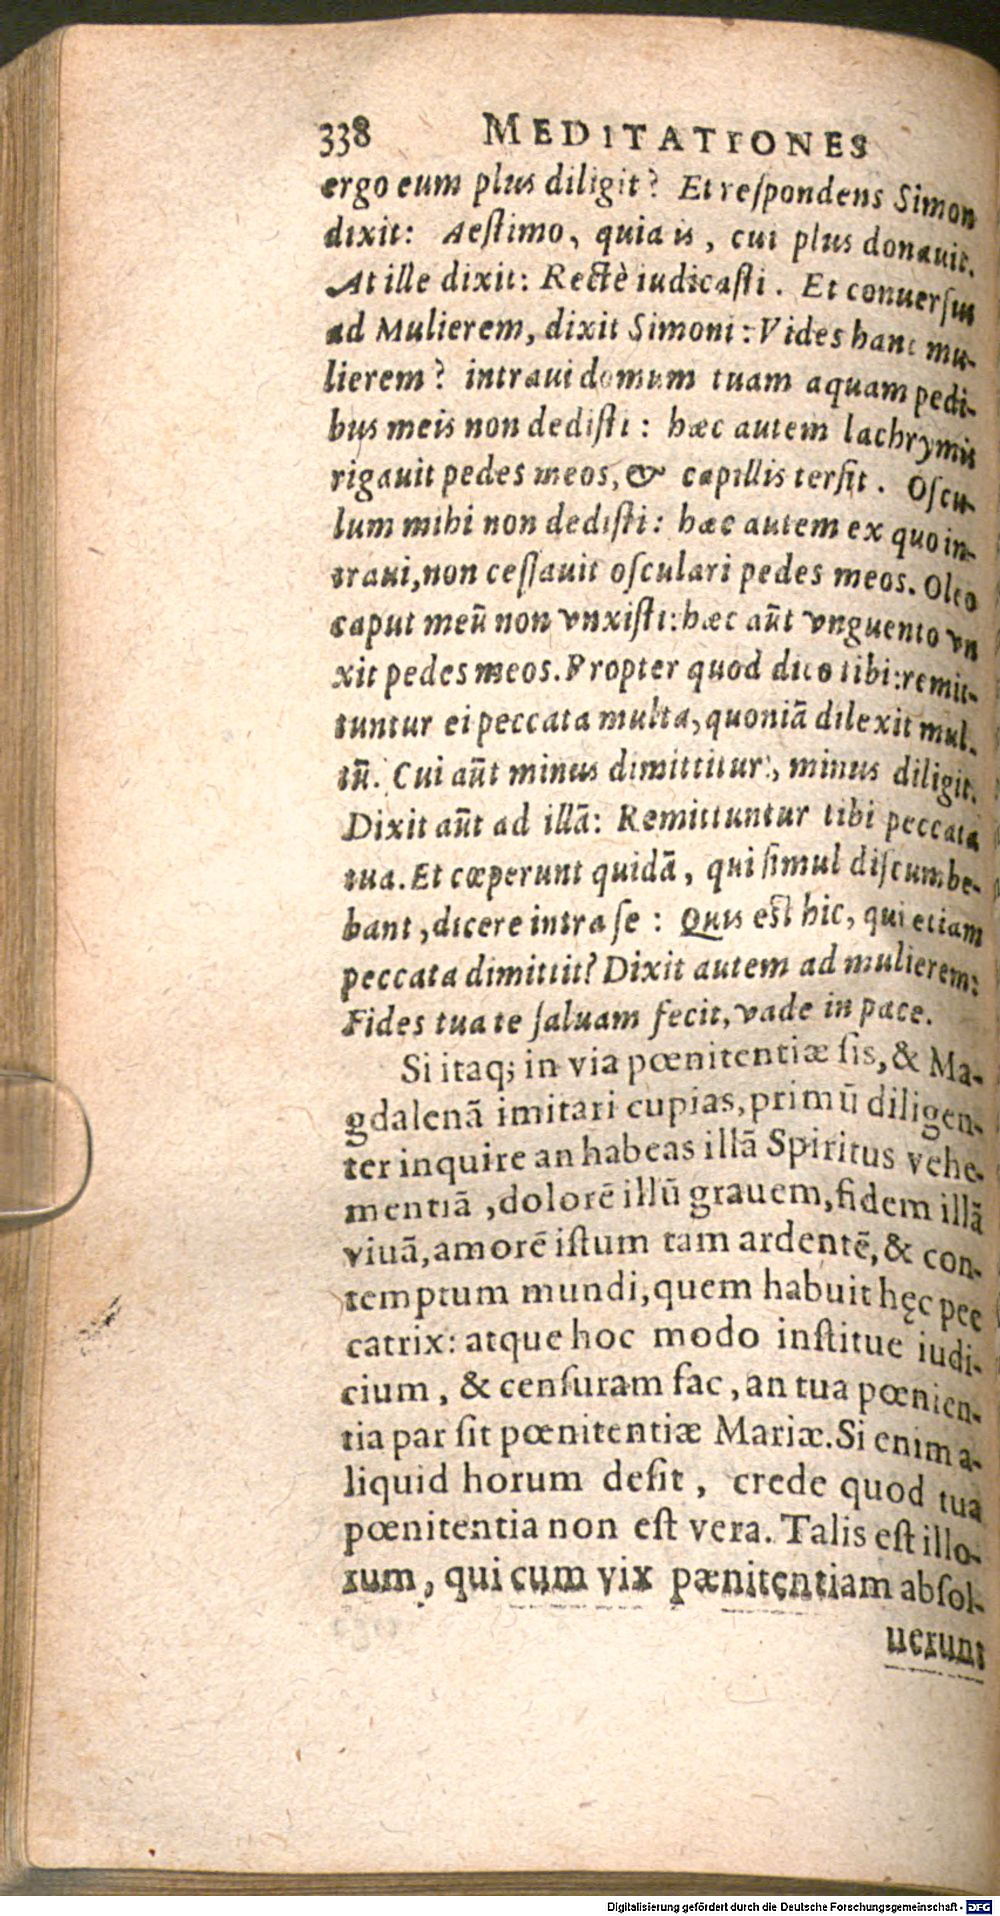 338 MEDITATIONES
ergo eum plus diligit? Et reſpondens Simon
dixit: Aeſtimo, quia is, cui plus donauit.
At ille dixit: Rectè iudicaſti. Et conuerſus
ad Mulierem, dixit Simoni: Vides hanc mu-
lierem? intraui domum tuam aquam pedi-
bus meis non dediſti: hæc autem lachrymis
rigauit pedes meos, & capillis terſit. Oſcu-
lum mihi non dediſti: hæc autem ex quo in-
traui, non ceſſauit oſculari pedes meos. Oleo
caput meũ non vnxiſti: hæc aũt vnguento vn
xit pedes meos. Propter quod dico tibi: remit-
tuntur ei peccata multa, quoniã dilexit mul-
tũ. Cui aũt minus dimittitur, minus diligit.
Dixit aũt ad illã: Remittuntur tibi peccata
tua. Et cœperunt quidã, qui ſimul diſcumbe-
bant, dicere intra ſe: Quis eſt hic, qui etiam
peccata dimittit? Dixit autem ad mulierem:
Fides tua te ſaluam fecit, vade in pace.
Si itaq; in via pœnitentiæ ſis, & Ma-
gdalenã imitari cupias, primũ diligen-
ter inquire an habeas illã Spiritus vehe-
mentiã, dolorẽ illũ grauem, fidem illã
viuã, amorẽ iſtum tam ardentẽ, & con-
temptum mundi, quem habuit hęc pec
catrix: atque hoc modo inſtitue iudi-
cium, & cenſuram fac, an tua pœnien-
tia par ſit pœnitentiæ Mariæ. Si enim a-
liquid horum deſit, crede quod tua
pœnitentia non eſt vera. Talis eſt illo-
rum, qui cum vix pænitentiam abſol-
uerunt
Digitalisierung gefördert durch die Deutsche Forschungsgemeinschaft - DFG